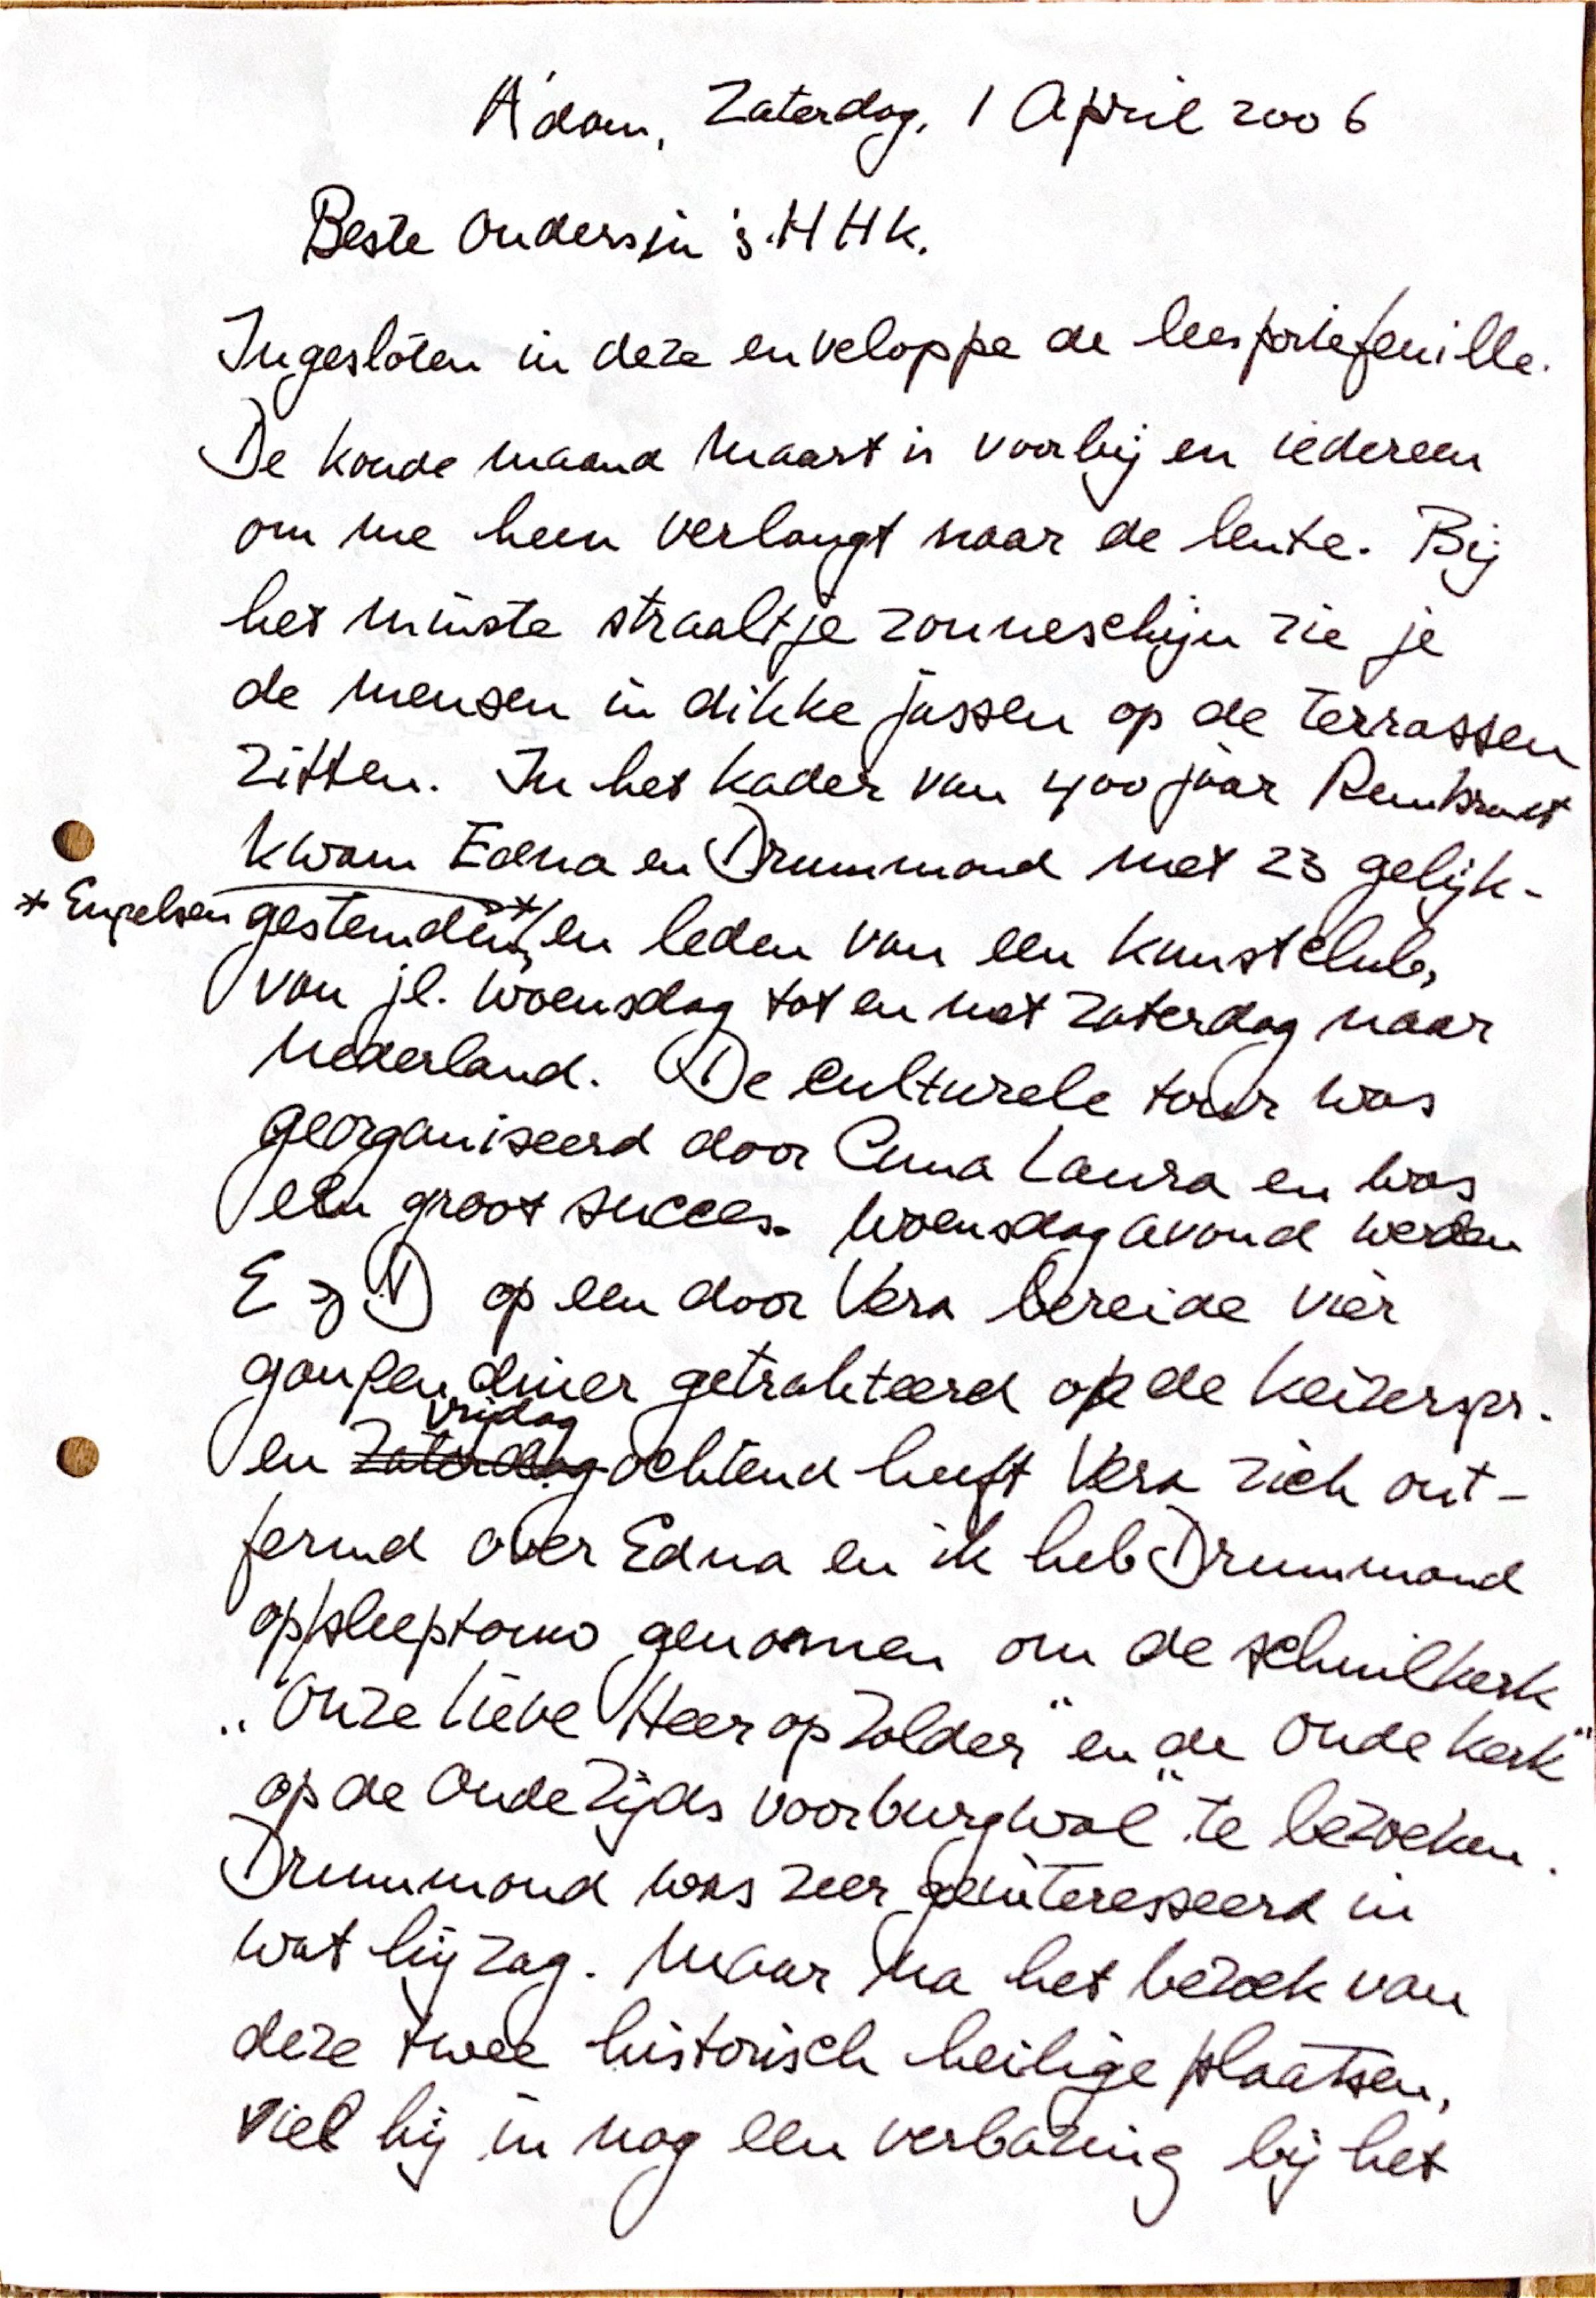 A'dam, Zaterdag, 1 April 2006
Beste Ouders in 's.HHK.
Ingesloten in deze enveloppe de leesportefeuille.
De koude maand Maart is voorbij en iedereen
om me heen verlangt naar de lente. Bij
het minste straaltje zonneschijn zie je
de mensen in dikke jassen op de terrassen
zitten. In het kader van 400 jaar Rembrandt
kwam Edna en Drummond met 23 gelijk-
* Engelsen
gestemden,* en leden van een kunstclub,
van jl. Woensdag tot en met Zaterdag naar
Nederland. De culturele tour was
georganiseerd door Anna Laura en was
een groot succes. Woensdagavond werden
E & D op een door Vera bereide vier
gangen diner getrakteerd op de Keizersgr.
vrijdag
en Zaterdag ochtend heeft Vera zich ont-
fermd over Edna en ik heb Drummond
op sleeptouw genomen om de schuilkerk
"Onze Lieve Heer op Zolder" en "de Oude Kerk"
op de Oude Zijds Voorburgwal" te bezoeken.
Drummond was zeer geinteresseerd in
wat hij zag. Maar na het bezoek van
deze twee historisch heilige plaatsen,
viel hij in nog een verbazing bij het